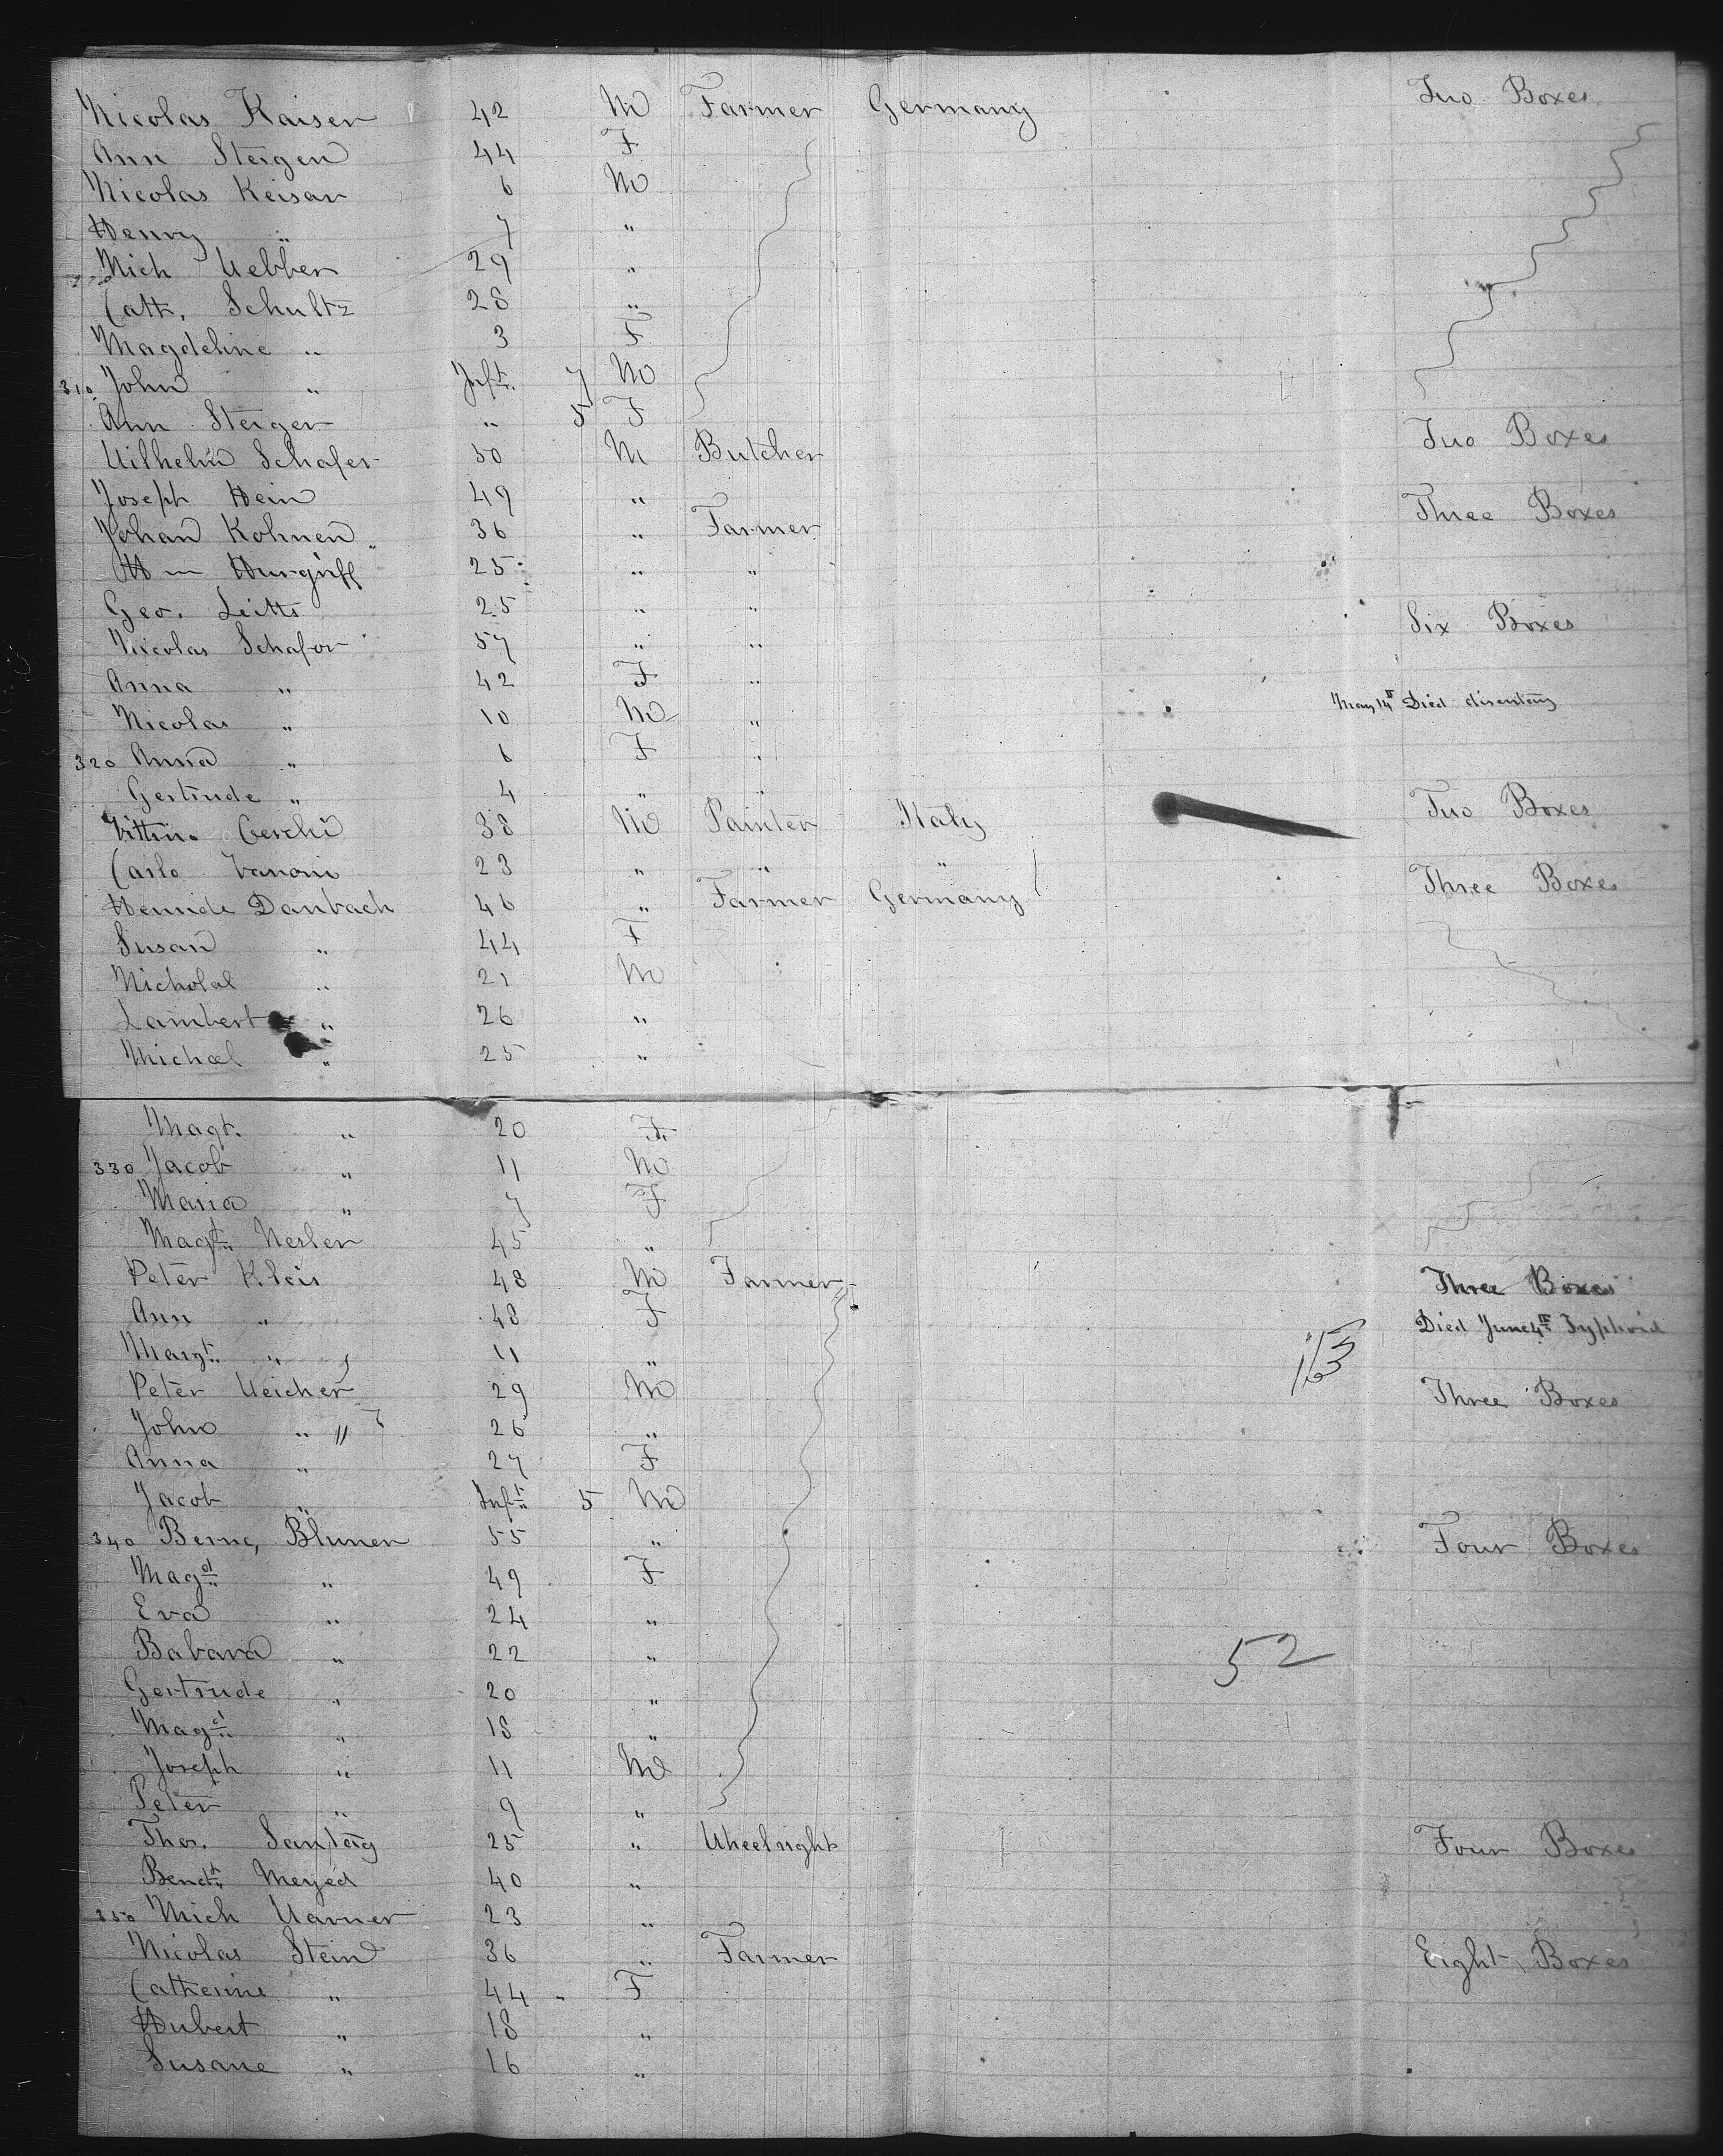 Nicolas Kaiser 42 M Farmer Germany Two Boxes
Ann Steigen 44 F
Nicolas Keisar 6 M
Henry " 7 "
Mich Uebber 29 "
Cath. Schultz 28 "
Magdeline " 3 F
310 John " Inft. 7 M
Ann Steiger " 5 F
Wilhelm Schafer 50 M Butcher Two Boxes
Joseph Hein 49 "
Johan Kohnen 36 " Farmer Three Boxes
25 " "
Geo. Leitts 25 " "
Nicolas Schafor 57 " " Six Boxes
Anna " 42 F "
Nicolas " 10 M " May 14th Died disentery
320 Anna " 6 F "
Gertrude " 4 " "
38 M Painter Italy Two Boxes
Carlo Vanoni 23 " " "
Danbach 46 " Farmer Germany Three Boxes
Susan " 44 F
Nicholal " 21 M
Lambert " 26 "
Michael " 25 "
Magt. " 20 F
330 Jacob " 11 M
Maria " 7 F
Magt. Nesler 45 "
Peter Kleis 48 M Farmer Three Boxes
Ann " 48 F Died June 4th Typhoid
Margt. " 11 "
13
Peter Weicher 29 M Three Boxes
John " " 26 "
Anna " 27 F
Jacob " Inft 5 M
340 Blumer 55 " Four Boxes
Magd " 49 F
Eva " 24 "
Babara " 22 "
52
Gertrude " 20 "
Magd " 18 "
Joseph " 11 M
Peter " 9 "
Thos. Santag 25 " Wheelright Four Boxes
Bendt. 40 "
350 Mich Warner 23 "
Nicolas Stein 36 " Farmer Eight Boxes
Catherine " 44 F
Hubert " 18 "
Susane " 16 "